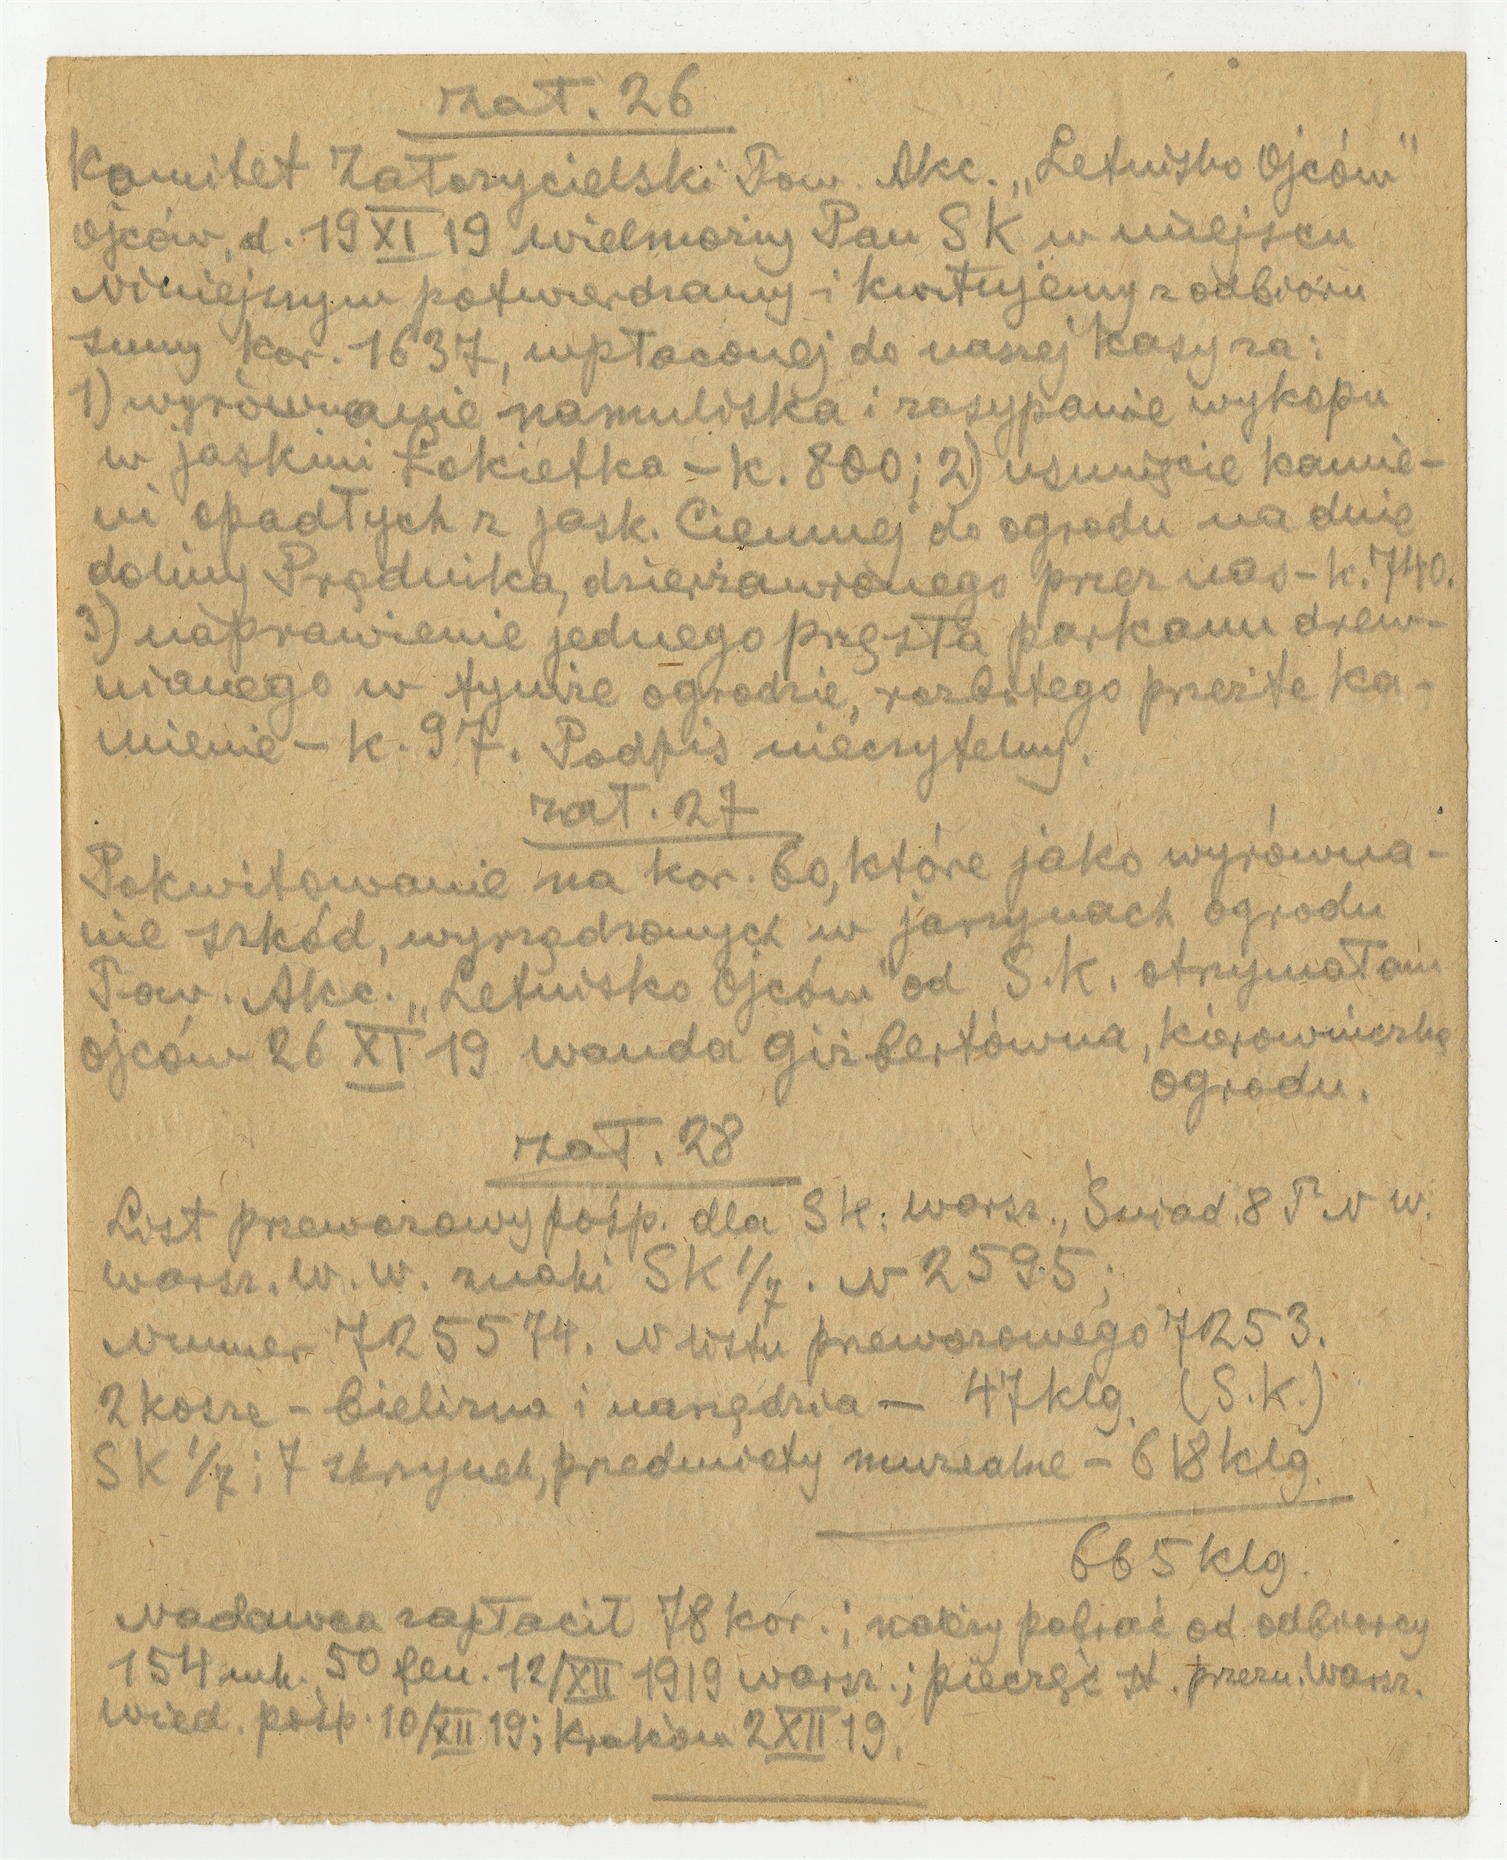 zał. 26
Komitet Założycielski Tow. Akc. „Letnisko Ojców"
Ojców, d. 19 XI 19 wielmożny Pan SK w miejscu
Niniejszym potwierdzamy i kwitujemy z odbioru
sumy kor. 1637, wpłaconej do naszej kasy za:
1) wyrównanie namuliska i zasypanie wykopu
w jaskini Łokietka – k. 800; 2) usunięcie kamie-
ni opadłych z jask. Ciemnej do ogrodu na dnie
doliny Prądnika, dzierżawionego przez nas – k. 740.
3) naprawienie jednego przęsła parkanu drew-
nianego w tymże ogrodzie, rozbitego przez te ka-
mienie – k. 97. Podpis nieczytelny.
zał. 27
Pokwitowanie na kor. 60, które jako wyrówna-
nie szkód, wyrządzonych w jarzynach ogrodu
Tow. Akc. „Letnisko Ojców" od S.K. otrzymałam
Ojców 26 XI 19 Wanda Giżbertówna, kierowniczka
ogrodu.
zał. 28
List przewozowy pośp. dla SK: Warsz., Śniad. 8 T N W.
Warsz. W. W. znaki SK 1/7. N 2595;
Numer 725574. N listu przewozowego 7253.
2 kosze – bielizna i narzędzia – 47 klg. (S.K.)
SK 1/7; 7 skrzynek, przedmioty muzealne – 618 klg.
665 klg.
Nadawca zapłacił 78 kor.; należy pobrać od odbiorcy
154 mk. 50 fen. 12/XII 1919 Warsz.; pieczęć st. przezn. Warsz.
Wied. pośp. 10/XII 19; Kraków 2 XII 19.